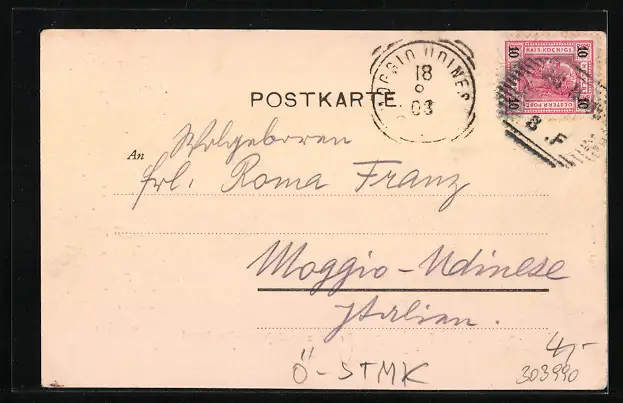 POSTKARTE
MOGGIO UDINESE
18
03
KAIS. KOENIGL.
OESTERR. POST
10
10
10
10
8 . F
An
Wolgeboren
Frl. Roma Franz
Moggio-Udinese
Italien.
4,-
Ö-STMK
303990